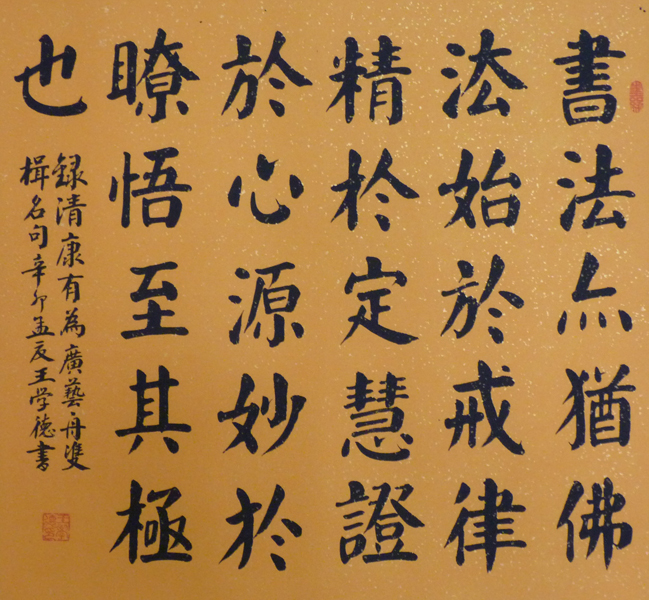 書法亦猶佛
法始於戒律
精於定慧證
於心源妙於
瞭悟至其極
也
録清康有為廣藝舟雙
楫名句辛卯孟夏王学德書